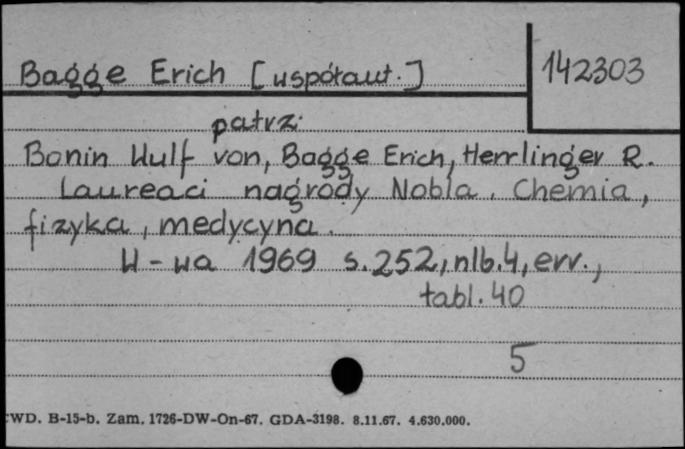 Bagge Erich [współaut.] 142303
patrz:
Bonin Wulf von, Bagge Erich, Herrlinger R.
Laureaci nagrody Nobla. Chemia,
fizyka, medycyna.
W-wa 1969 s. 252, nlb. 4, err.,
tabl. 40
5
WD. B-15-b. Zam. 1726-DW-On-67. GDA-3198. 8.11.67. 4.630.000.